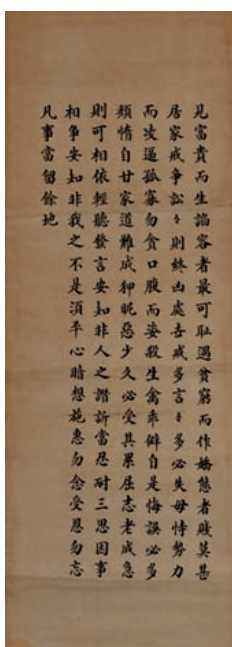 見富貴而生諂容者最可耻遇貧窮而作嬌態者賤莫甚
居家戒争訟〻則終凶處去戒多言〻多必失毋恃势力
而凌逼孤寡勿貪口腹而恣殺生禽乖僻自是悔誤必多
頹惰自甘家道難成狎昵惡少久必受其累屈志老成急
則可相依輕聽發言安知非人之譖訴當忍耐三思因事
相争安知非我之不是須平心暗想施惠勿念受恩勿忘
凡事當留餘地